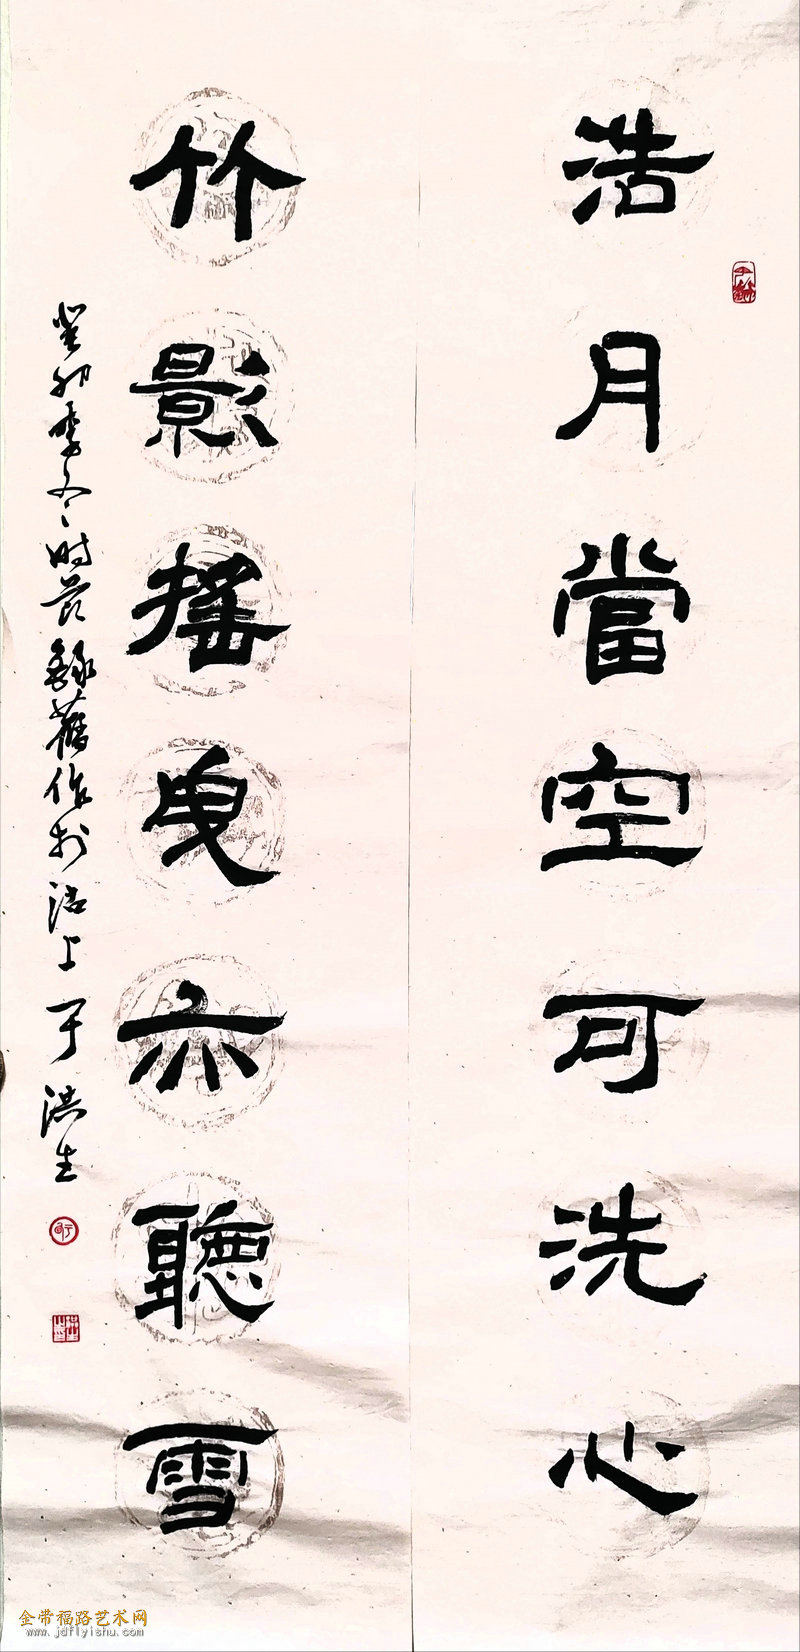 浩月當空可洗心
竹影搖曳亦聽雪
癸卯季冬時節錄舊作於沽上于洪生
金带福路艺术网
www.jdflyishu.com